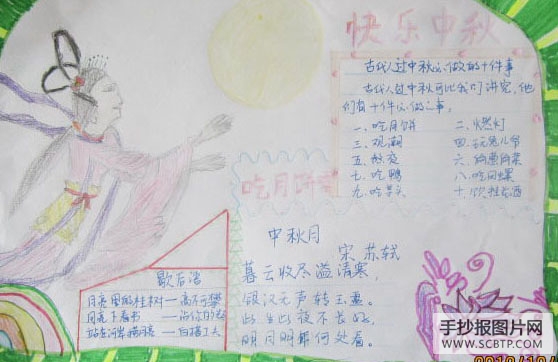 快乐中秋
古代人过中秋必做的十件事
古代人过中秋可比我们讲究,他
们有十件必做之事。
一、吃月饼 二、燃灯
三、观潮 四、玩兔儿爷
五、 六、偷
七、吃鸭 八、吃田螺
九、吃芋头 十、饮桂花酒
吃月饼
中秋月
宋 苏轼
暮云收尽溢清寒,
银汉无声转玉盘。
此生此夜不长好,
明月明年何处看。
歇后语
月亮里的桂树—高不可攀
月亮下看书
站在河岸捞月亮—白搭工夫
手抄报图片网
WWW.SCBTP.COM